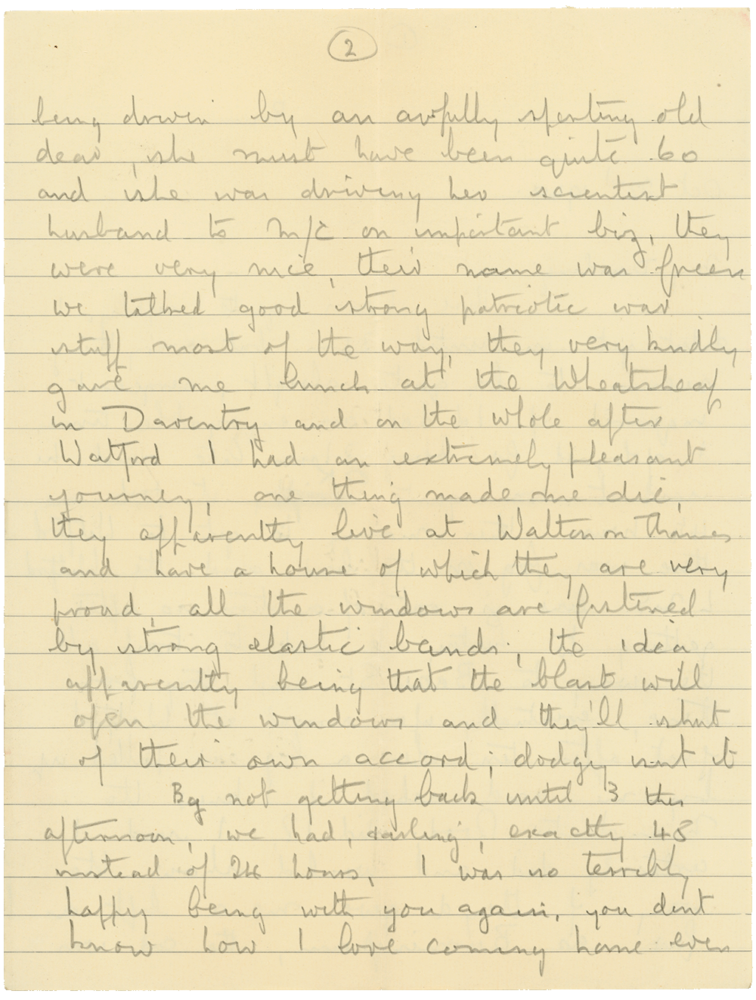 2
being driven by an awfully sporting old
dear, she must have been quite 60
and she was driving her scientist
husband to M/C on important biz, they
were very nice, their name was Green
we talked good strong patriotic war
stuff most of the way, they very kindly
gave me lunch at the Wheatsheaf
in Daventry and on the whole after
Watford I had an extremely pleasant
journey, one thing made me die,
they apparently live at Walton on Thames
and have a house of which they are very
proud, all the windows are fastened
by strong elastic bands; the idea
apparently being that the blast will
open the windows and they'll shut
of their own accord; dodgy isnt it
By not getting back until 3 this
afternoon, we had, darling, exactly 48
instead of 24 hours, I was so terribly
happy being with you again, you dont
know how I love coming home even